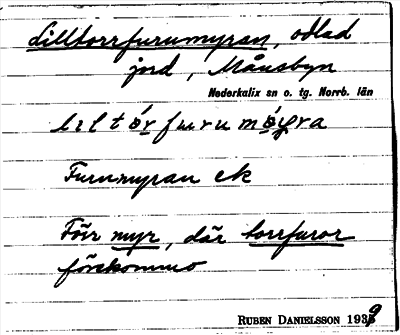 Lilltorrfurumyran, odlad
jord, Månsbyn
Nederkalix sn o. tg. Norrb. län
Furumyran ek
Förr myr, där torrfuror
förekommo
RUBEN DANIELSSON 1939